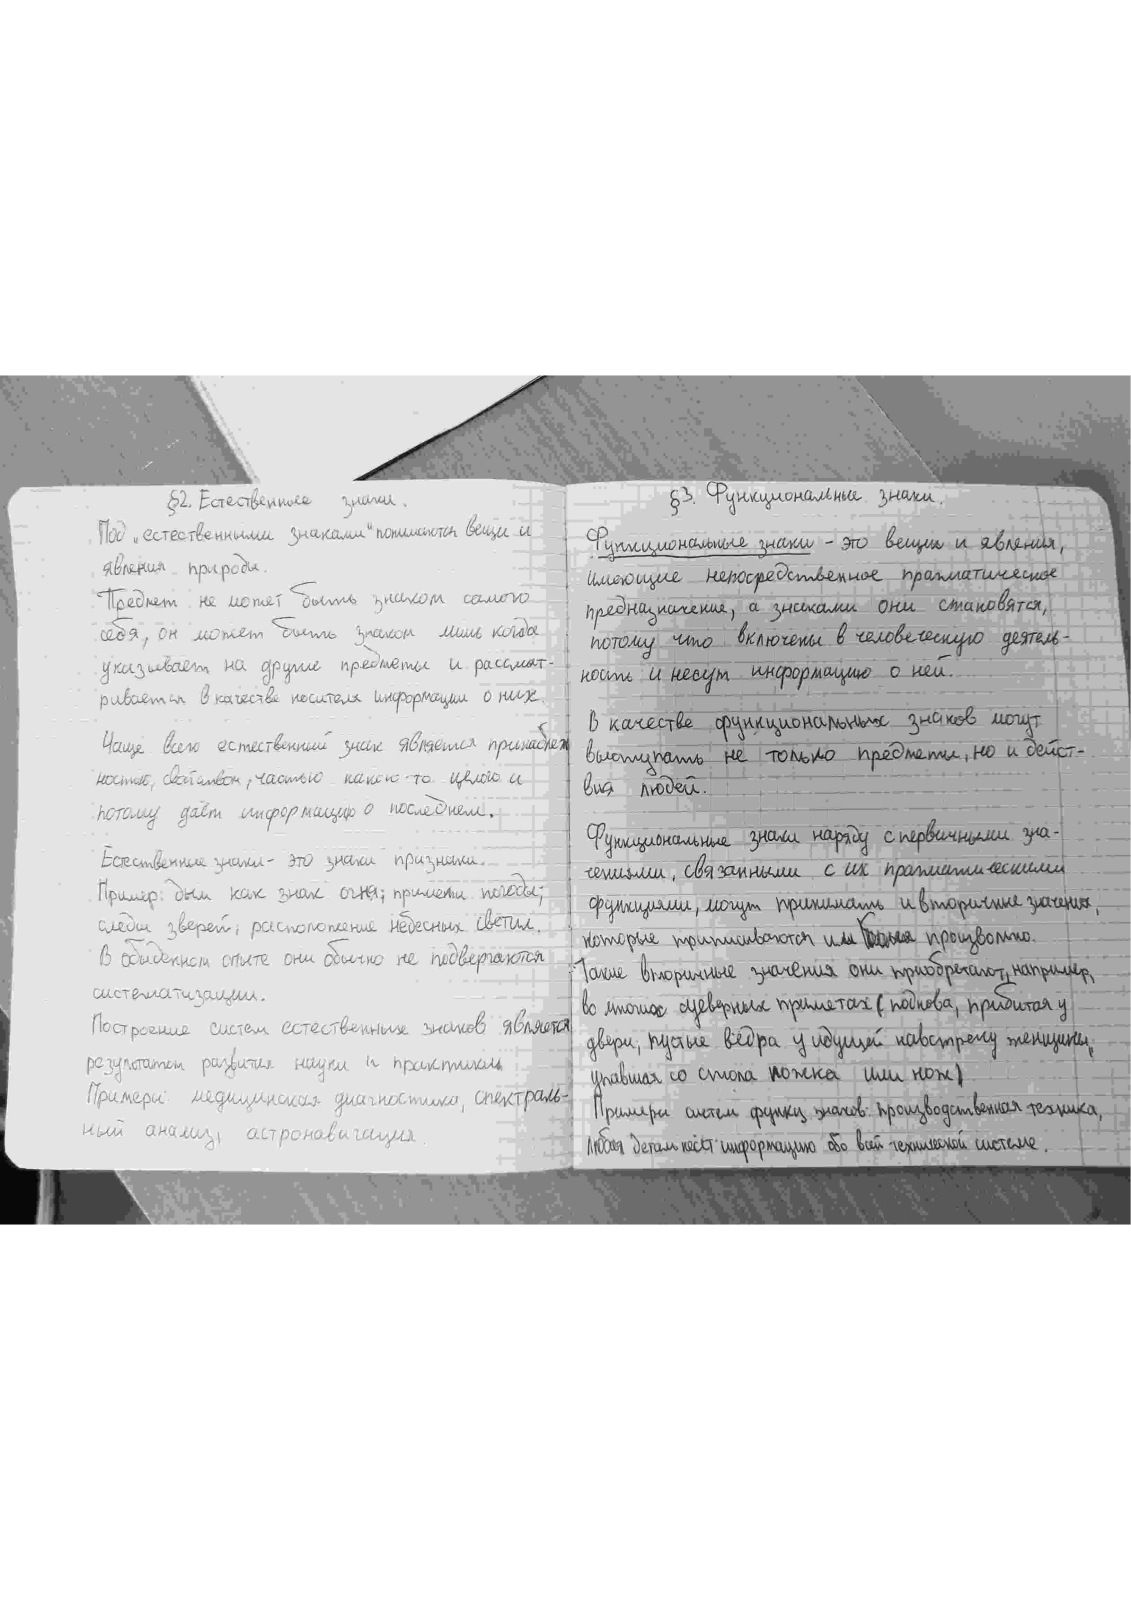 §2. Естественные знаки.
Под „естественными знаками" понимаются вещи и
явления природы.
Предмет не может быть знаком самого
себя, он может быть знаком лишь когда
указывает на другие предметы и рассмат-
ривается в качестве носителя информации о них.
Чаще всего естественный знак является принадлеж
ностью, свойством, частью какого-то целого и
потому даёт информацию о последнем.
Естественные знаки- это знаки признаки.
Пример: дым как знак огня; приметы погоды;
следы зверей; расположение небесных светил.
В обыденном опыте они обычно не подвергаются
систематизации.
Построение систем естественных знаков является
результатом развития науки и практики.
Примеры: медицинская диагностика, спектраль-
ный анализ, астронавигация.
§3. Функциональные знаки.
Функциональные знаки - это вещи и явления,
имеющие непосредственное прагматическое
предназначение, а знаками они становятся,
потому что включены в человеческую деятель-
ность и несут информацию о ней.
В качестве функциональных знаков могут
выступать не только предметы, но и дейст-
вия людей.
Функциональные знаки наряду с первичными зна-
чениями, связанными с их прагматическими
функциями, могут принимать и вторичные значения,
которые приписываются им произвольно.
Такие вторичные значения они приобретают, например,
во многих суеверных приметах (подкова, прибитая у
двери, пустые вёдра у идущей навстречу женщины,
упавшая со стола ложка или нож)
Примеры систем функц. знаков: производственная техника,
любая деталь несёт информацию обо всей технической системе.